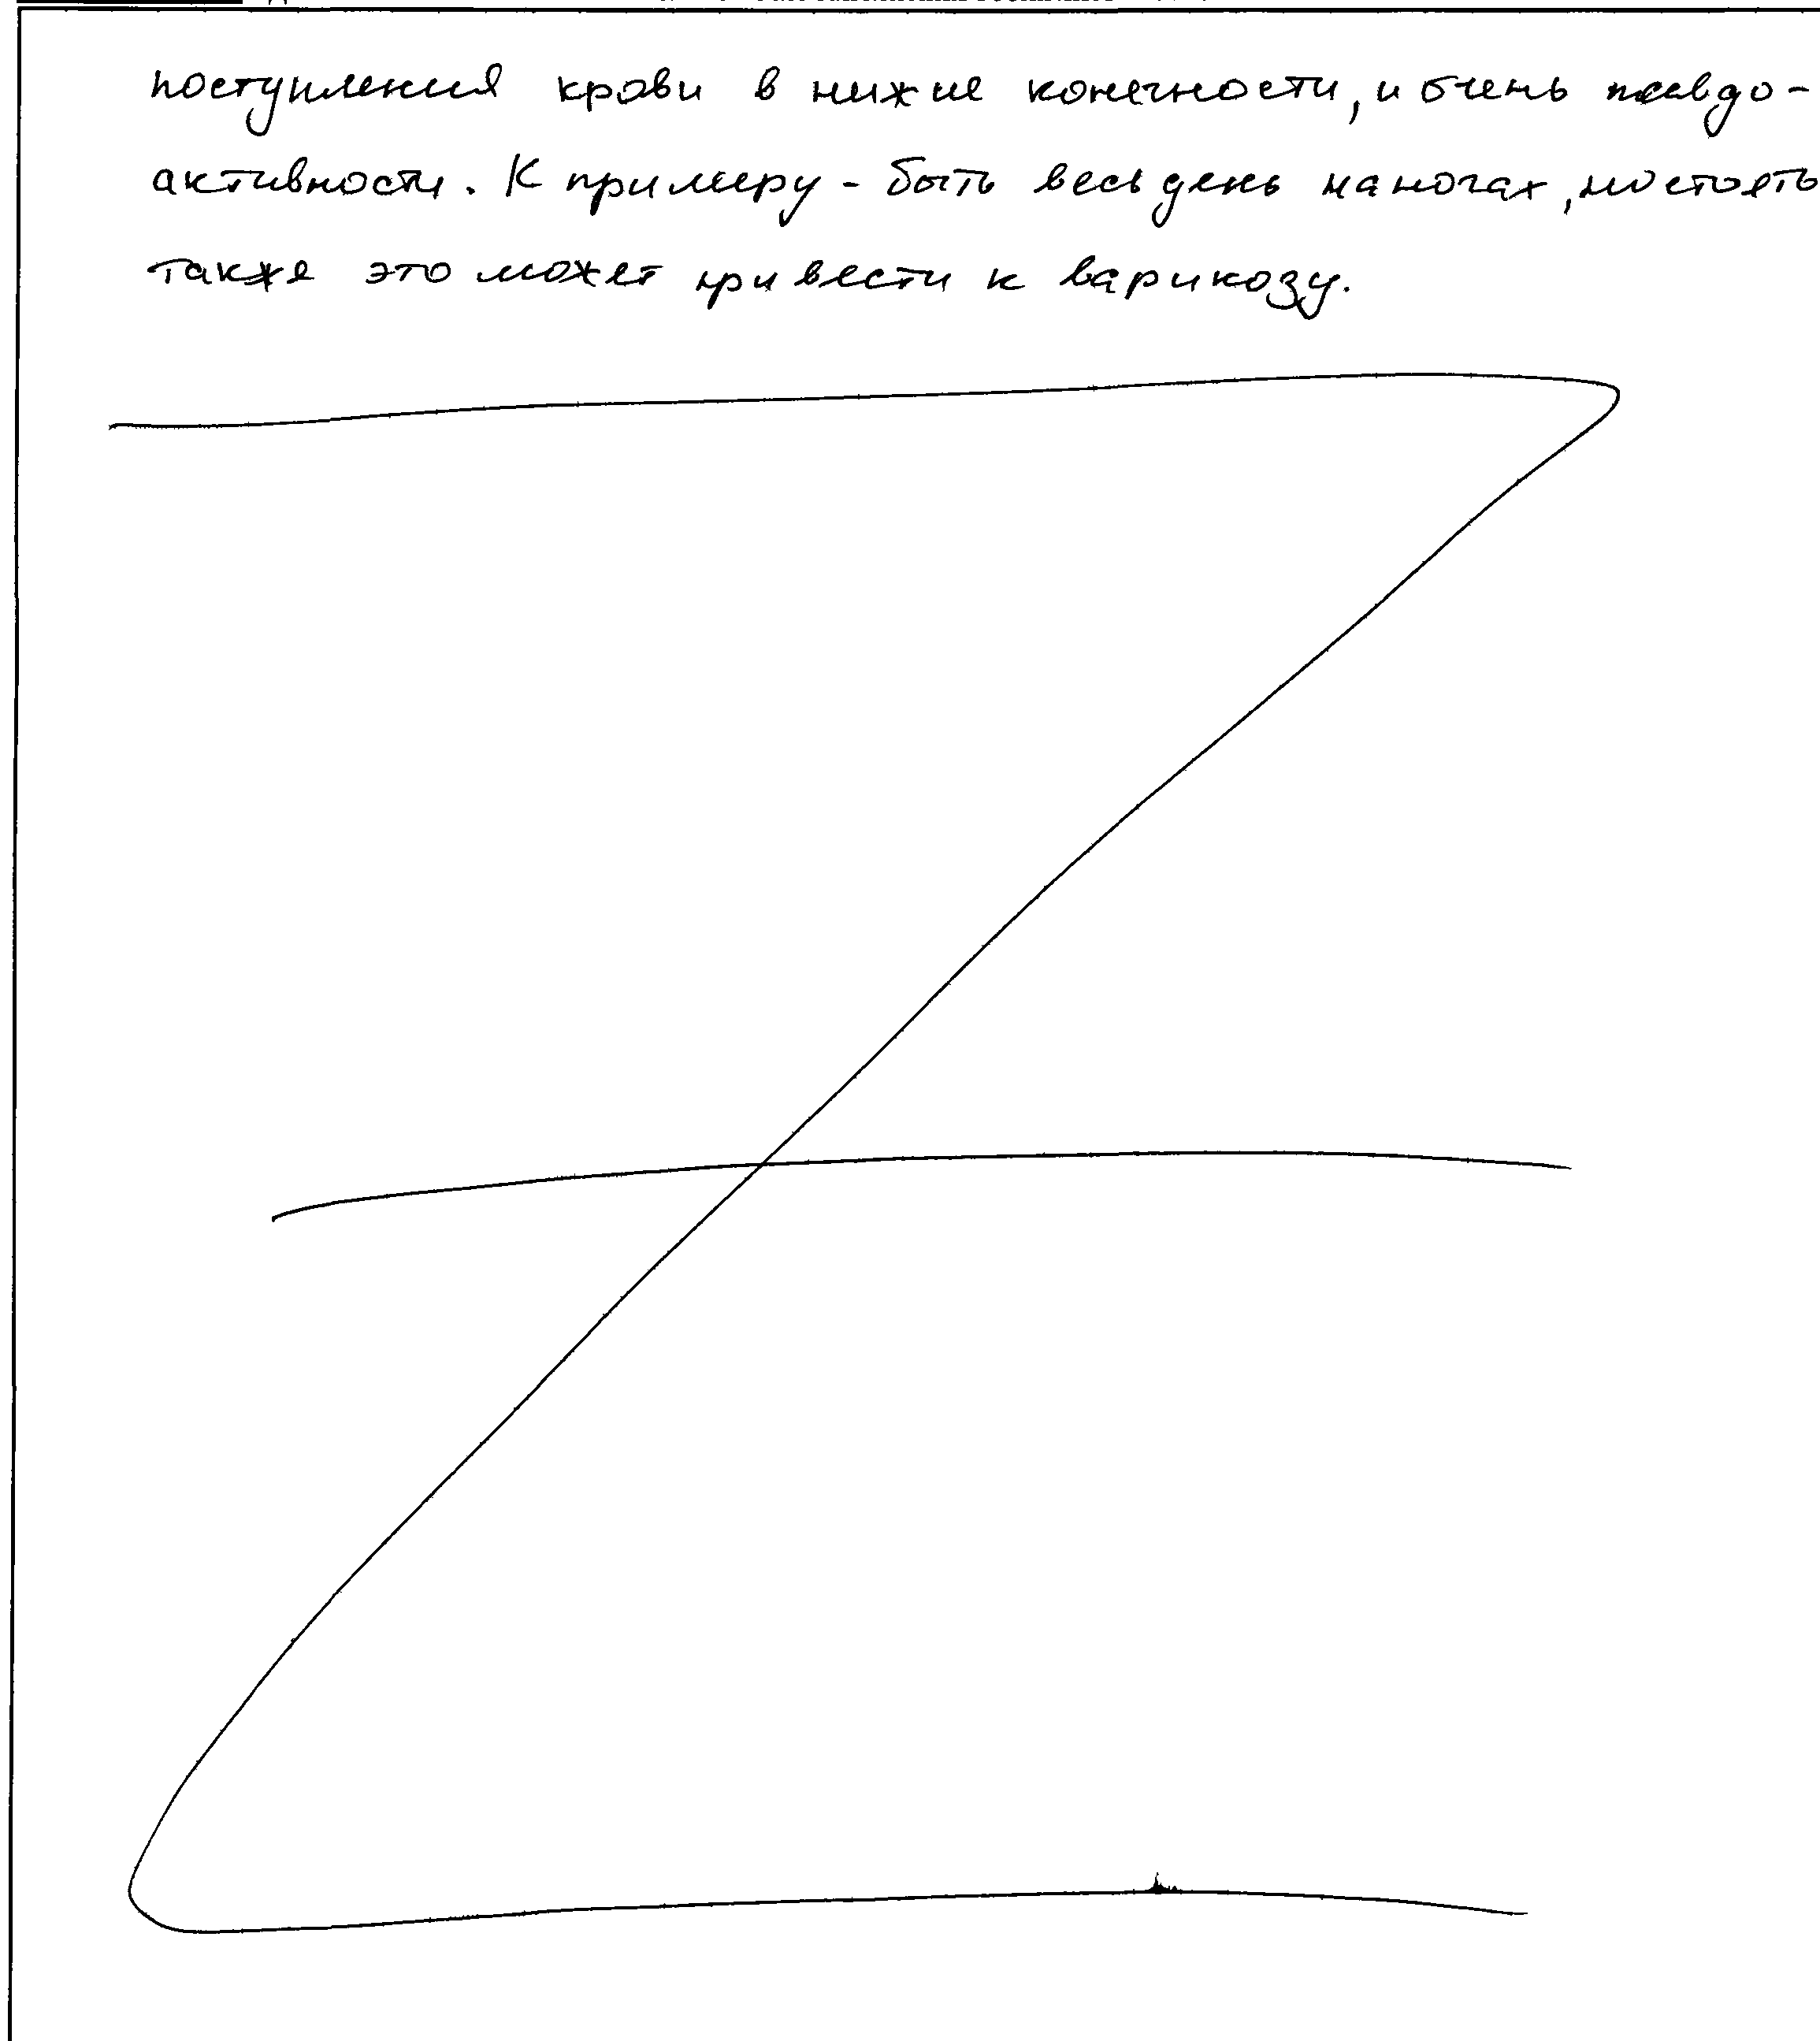 поступления крови в нижие конечности, и очень псевдо-
активности. К примеру - быть весь день на ногах, но стоять
также это может привести к варикозу.